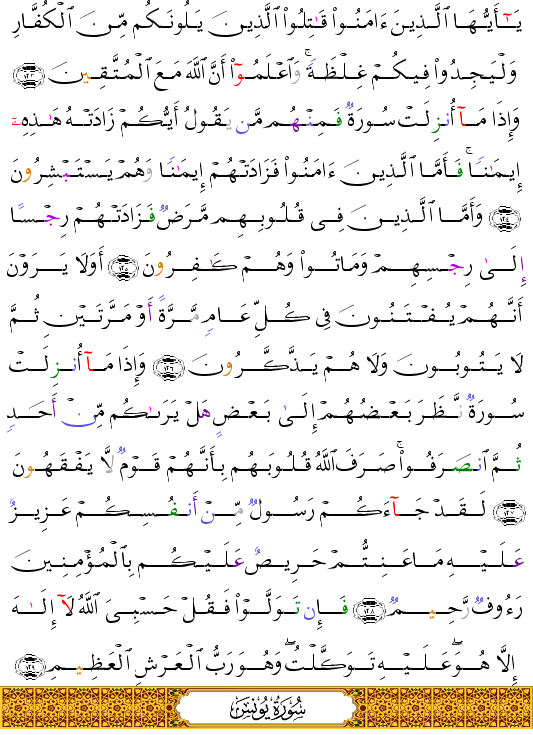 يَـٰٓأَيُّهَا ٱلَّذِينَ ءَامَنُوا۟ قَـٰتِلُوا۟ ٱلَّذِينَ يَلُونَكُم مِّنَ ٱلْكُفَّارِ
وَلْيَجِدُوا۟ فِيكُمْ غِلْظَةً ۚ وَٱعْلَمُوٓا۟ أَنَّ ٱللَّهَ مَعَ ٱلْمُتَّقِينَ ﴿١٢٣﴾
وَإِذَا مَآ أُنزِلَتْ سُورَةٌ فَمِنْهُم مَّن يَقُولُ أَيُّكُمْ زَادَتْهُ هَـٰذِهِۦٓ
إِيمَـٰنًا ۚ فَأَمَّا ٱلَّذِينَ ءَامَنُوا۟ فَزَادَتْهُمْ إِيمَـٰنًا وَهُمْ يَسْتَبْشِرُونَ
﴿١٢٤﴾ وَأَمَّا ٱلَّذِينَ فِى قُلُوبِهِم مَّرَضٌ فَزَادَتْهُمْ رِجْسًا
إِلَىٰ رِجْسِهِمْ وَمَاتُوا۟ وَهُمْ كَـٰفِرُونَ ﴿١٢٥﴾ أَوَلَا يَرَوْنَ
أَنَّهُمْ يُفْتَنُونَ فِى كُلِّ عَامٍ مَّرَّةً أَوْ مَرَّتَيْنِ ثُمَّ
لَا يَتُوبُونَ وَلَا هُمْ يَذَّكَّرُونَ ﴿١٢٦﴾ وَإِذَا مَآ أُنزِلَتْ
سُورَةٌ نَّظَرَ بَعْضُهُمْ إِلَىٰ بَعْضٍ هَلْ يَرَىٰكُم مِّنْ أَحَدٍ
ثُمَّ ٱنصَرَفُوا۟ ۚ صَرَفَ ٱللَّهُ قُلُوبَهُم بِأَنَّهُمْ قَوْمٌ لَّا يَفْقَهُونَ
﴿١٢٧﴾ لَقَدْ جَآءَكُمْ رَسُولٌ مِّنْ أَنفُسِكُمْ عَزِيزٌ
عَلَيْهِ مَا عَنِتُّمْ حَرِيصٌ عَلَيْكُم بِٱلْمُؤْمِنِينَ
رَءُوفٌ رَّحِيمٌ ﴿١٢٨﴾ فَإِن تَوَلَّوْا۟ فَقُلْ حَسْبِىَ ٱللَّهُ لَآ إِلَـٰهَ
إِلَّا هُوَ ۖ عَلَيْهِ تَوَكَّلْتُ ۖ وَهُوَ رَبُّ ٱلْعَرْشِ ٱلْعَظِيمِ ﴿١٢٩﴾
سُورَةُ يُونُسَ